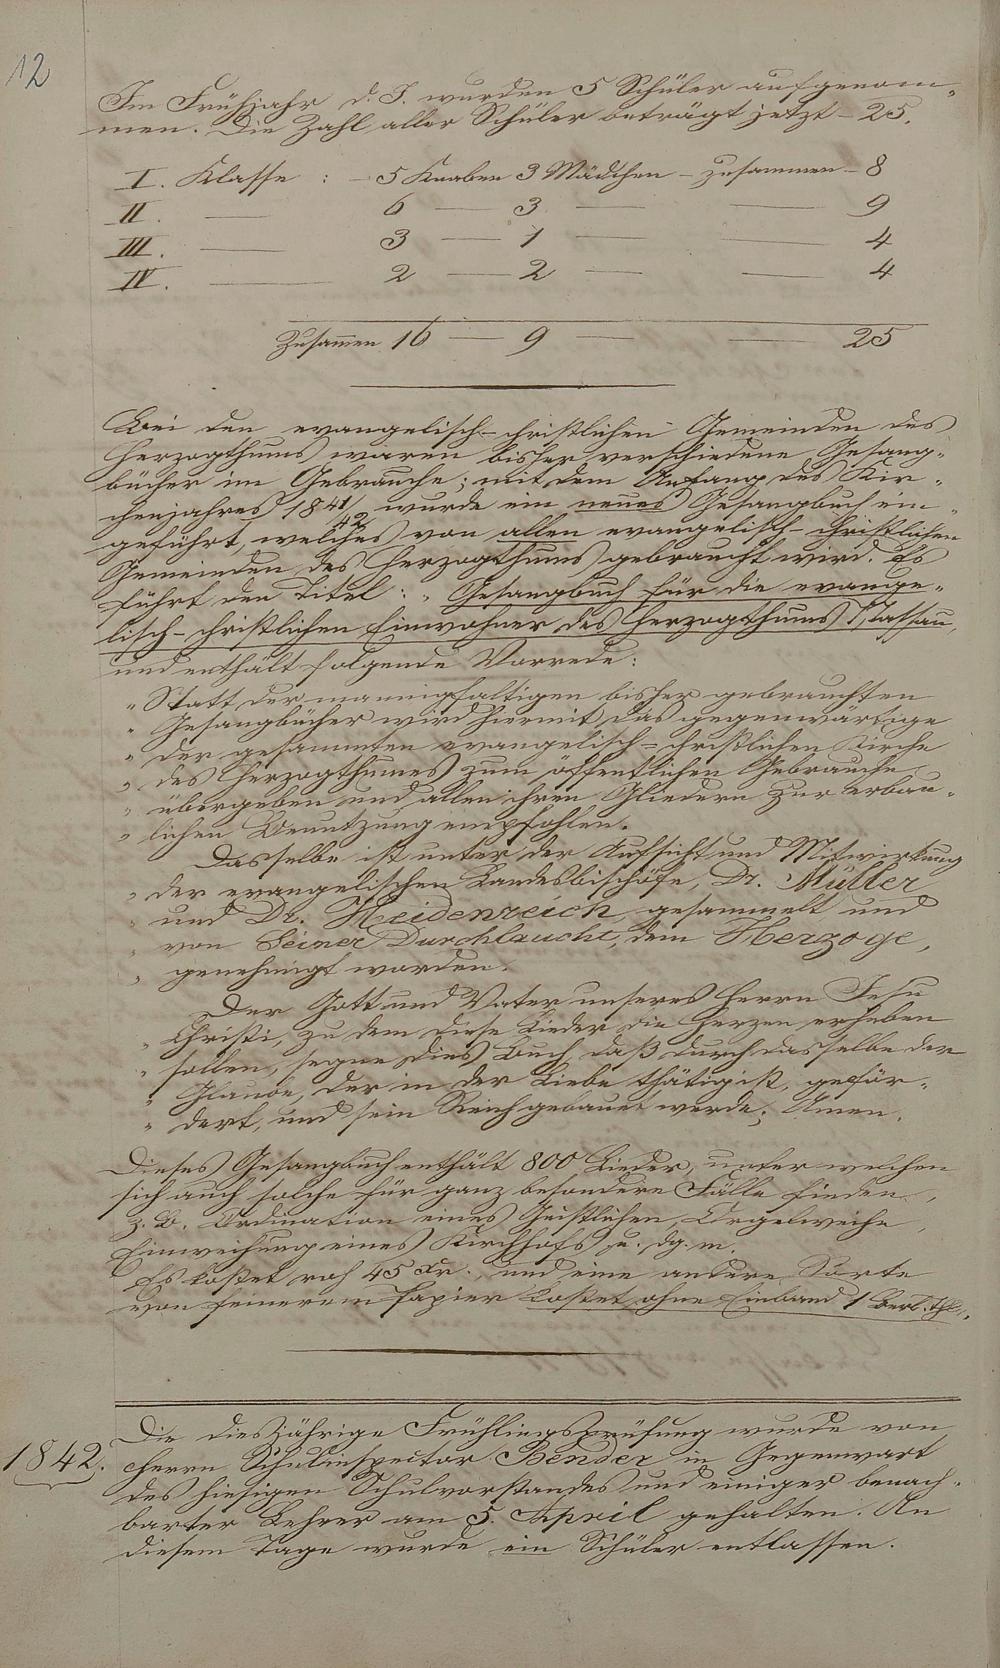 12
Im Frühjahr d. J. wurden 5 Schüler aufgenom-
men. Die Zahl aller Schüler beträgt jetzt – 25.
I. Klasse : – 5 Knaben 3 Mädchen – zusammen – 8
II. — 6 — 3 — — 9
III. — 3 — 1 — — 4
IV. — 2 — 2 — — 4
Zusammen 16 — 9 — — 25
Bei den evangelisch-christlichen Gemeinden des
Herzogthums waren bisher verschiedene Gesang-
bücher im Gebrauche; mit dem Anfang des Kir-
chenjahres 1841/42 wurde ein neues Gesangbuch ein-
geführt, welches von allen evangelisch-christlichen
Gemeinden des Herzogthums gebraucht wird. Es
führt den Titel: „Gesangbuch für die evange-
lisch-christlichen Einwohner des Herzogthums Nassau,
und enthält folgende Vorrede:
„Statt der mannigfaltigen bisher gebrauchten
„Gesangbücher wird hiermit das gegenwärtige
„der gesammten evangelisch-christlichen Kirche
„des Herzogthumes zum öffentlichen Gebrauche
„übergeben und allen ihren Gliedern zur erbau-
„lichen Benutzung empfohlen.
Dasselbe ist unter der Aufsicht und Mitwirkung
„der evangelischen Landesbischöfe, Dr. Müller
„und Dr. Heidenreich gesammelt und
„von Seiner Durchlaucht, dem Herzoge,
„genehmigt worden.
Der Gott und Vater unseres Herrn Jesu
„Christi, zu dem diese Lieder die Herzen erheben
„sollen, segne dies Buch, daß durch dasselbe der
„Glaube, der in der Liebe thätig ist, geför-
„dert, und sein Reich gebauet werde; Amen.
Dieses Gesangbuch enthält 800 Lieder, unter welchen
sich auch solche für ganz besondere Fälle finden,
z. B. Ordination eines Geistlichen, Orgelweihe,
Einweihung eines Kirchhofs u. dg. m.
Es kostet roh 45 Xr. und eine andere Sorte
von feinerem Papier kostet ohne Einband 1 Berl. Thl.
1842.
Die diesjährige Frühlingsprüfung wurde von
Herrn Schulinspector Bender in Gegenwart
des hiesigen Schulvorstandes und einiger benach-
barter Lehrer am 5. April gehalten. An
diesem Tage wurde ein Schüler entlassen.